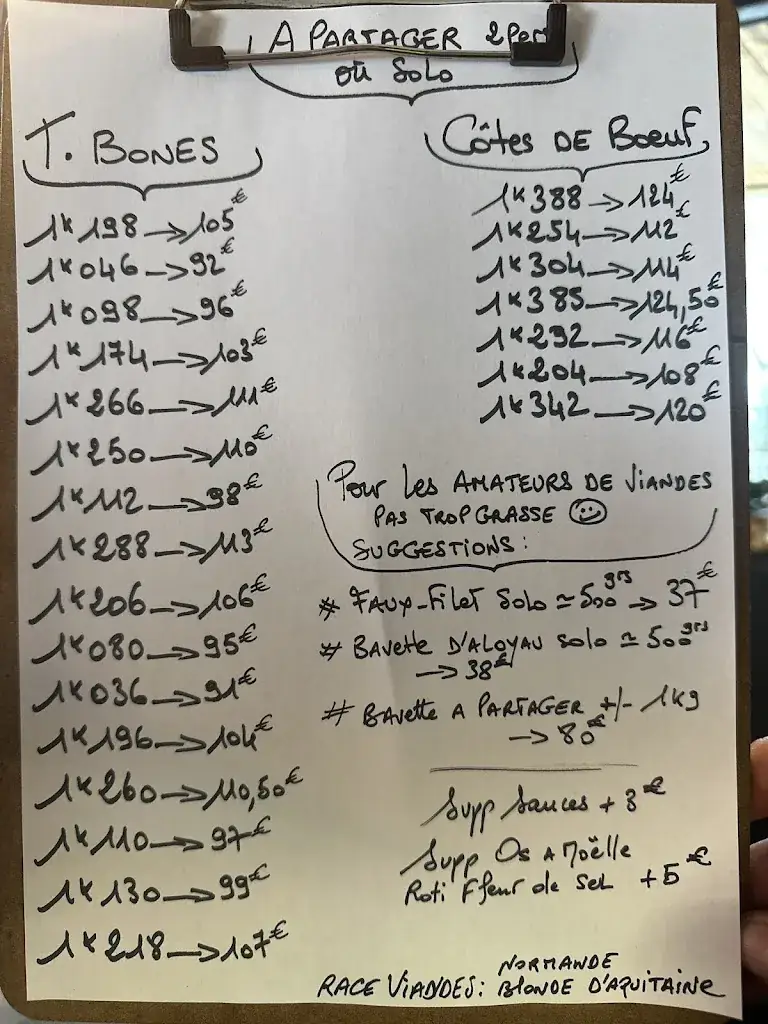 A PARTAGER 2 Per
où Solo
T. BONES
1K198→105€
1K046→92€
1K098→96€
1K174→103€
1K266→111€
1K250→110€
1K112→98€
1K288→113€
1K206→106€
1K080→95€
1K036→91€
1K196→104€
1K260→110,50€
1K110→97€
1K130→99€
1K218→107€
Côtes DE Boeuf
1K388→124€
1K254→112€
1K304→114€
1K385→124,50€
1K292→116€
1K204→108€
1K342→120€
Pour Les AMATEURS DE VIANDES
PAS TROP GRASSE ☺
SUGGESTIONS:
* FAUX-FILET Solo ≃ 500 grs → 37€
* BAVETTE D'ALOYAU Solo ≃ 500 grs
→ 38€
# BAVETTE A PARTAGER +/- 1Kg
→ 80€
Supp Sauces + 3€
Supp Os A Moëlle
Roti Ffeur de Sel +5€
RACE VIANDES: NORMANDE
BLONDE D'AQUITAINE